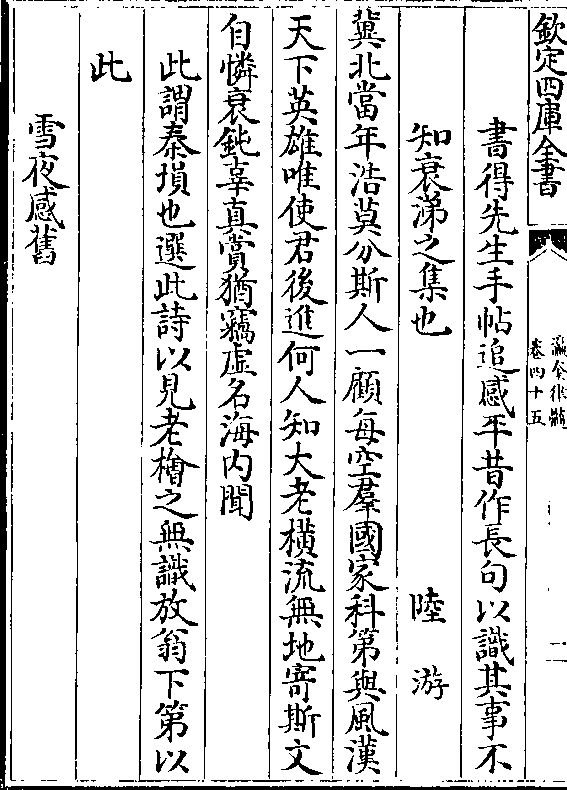 欽定四庫全書
瀛奎律髓
卷四十五
書得先生手帖追感平昔作長句以識其事不
知衰涕之集也　陸游
冀北當年浩莫分斯人一顧每空羣國家科第與風漢
天下英雄唯使君後進何人知大老橫流無地寄斯文
自憐衰鈍辜真賞猶竊虛名海内聞
此謂秦塤也選此詩以見老檜之無識放翁下第以
此
雪夜感舊